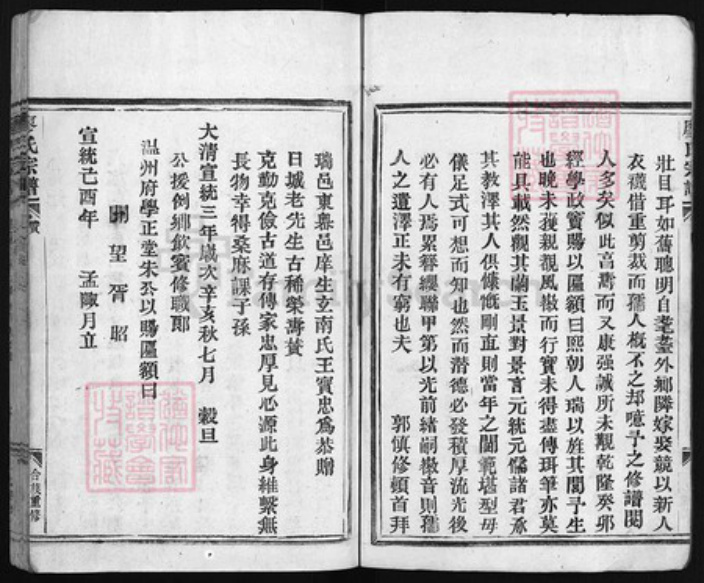 壯目耳如舊聰明自耄耋外鄉隣嫁娶競以新人
衣襪借重剪裁而孺人槪不之却噫予之修譜閱
人多矣似此高壽而又康强誠所未覯乾隆癸卯
經學政竇賜以區額曰熙朝人瑞以旌其閭予生
也晚未獲親覩風徽而行實未得盡傳珥筆亦莫
能具載然觀其蘭玉景對景言元統元儒諸君承
其教澤其人俱慷慨剛直則當年之閫範堪型母
儀足式可想而知也然而潛德必發積厚流光後
必有人焉累簪纓聯甲第以光前緒嗣徽音則孺
人之遺澤正未有窮也夫
郭慎修頓首拜
瑞邑東
邑庠生玄南氏王寶忠爲恭贈
日城老先生古稀榮壽贊
克勤克儉古道有傳家忠厚見心源此身維繫無
長物幸得桑麻課子孫
大清宣統三年歲次辛亥秋七月 穀旦
公援例鄉飲賓修職郞
温州府學正堂朱公以賜區額曰
望胥昭
宣統己酉年 孟陬月立
廖氏宗譜
贊
合族重修